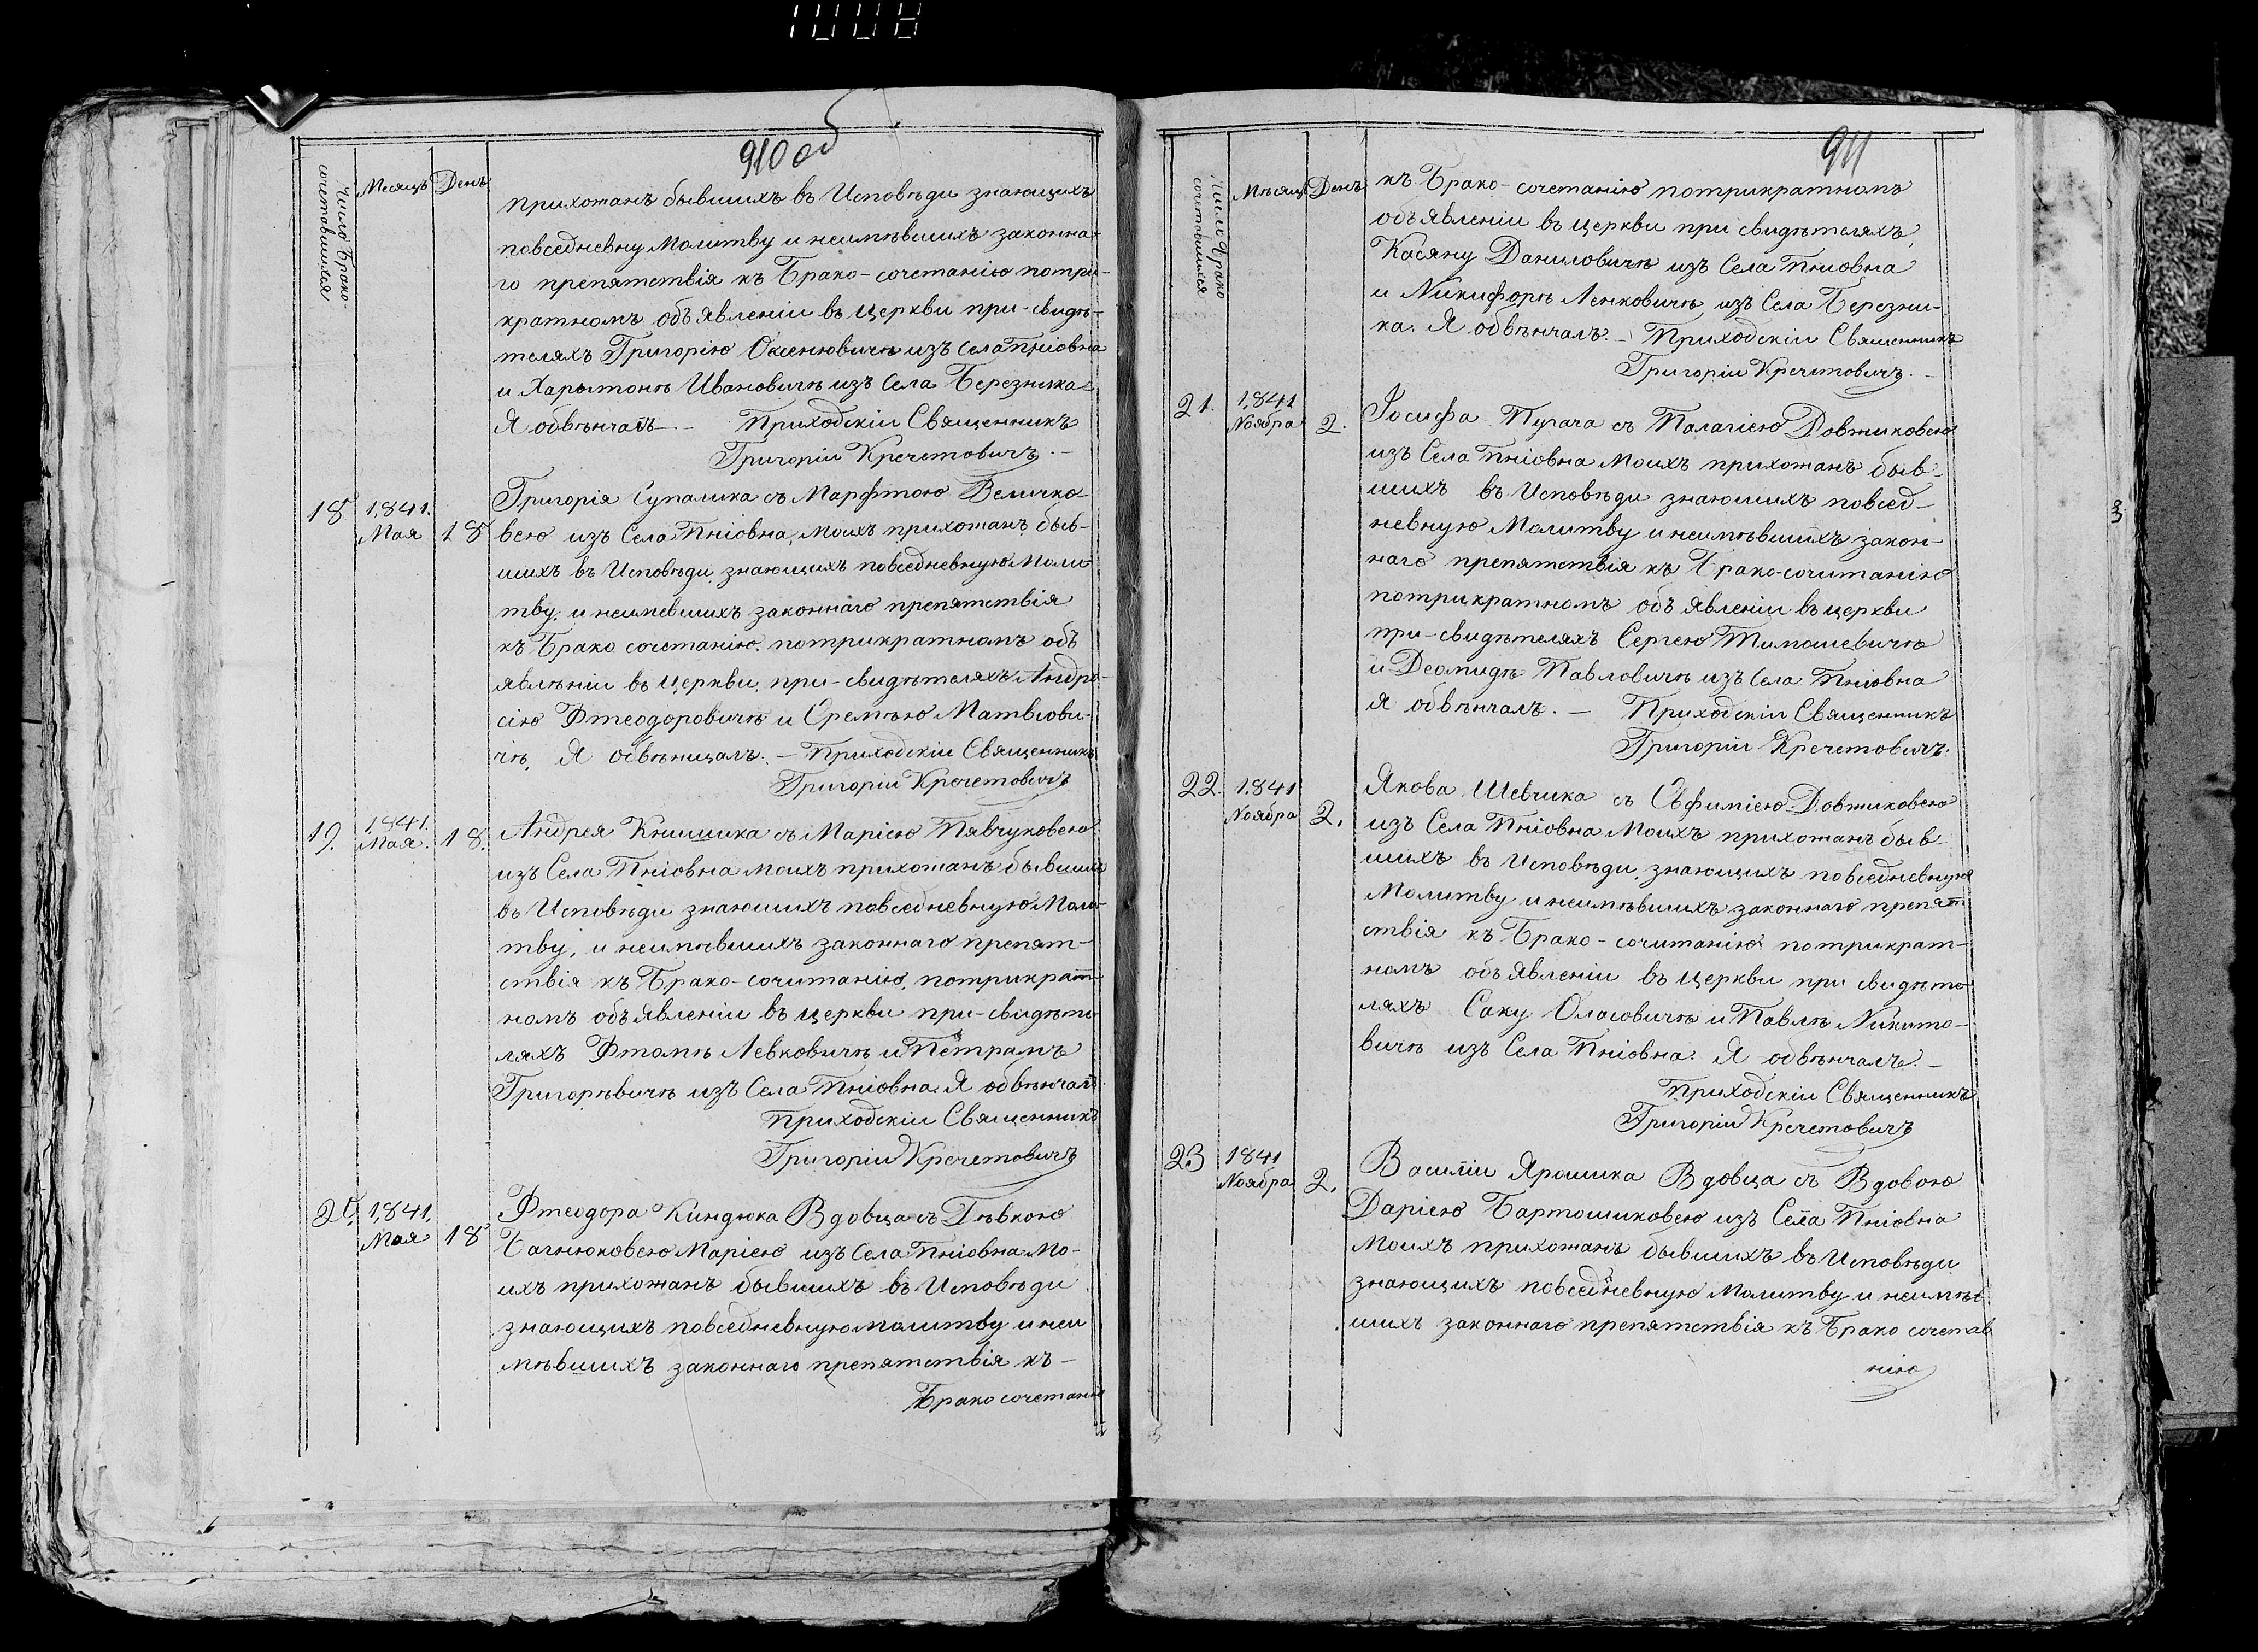 1008
910 об
Число Брако-
сочетавшихся
Месяцъ
День
прихожанъ бывшихъ въ Исповѣди знающихъ
повседневну Молитву и неимѣвшихъ законна-
го препятствія къ Брако-сочетанію потри-
кратномъ объявленіи въ Церкви при-свидѣ-
теляхъ Григорію Оксенювичѣ изъ Села Пніовна
и Харытонѣ Ивановичѣ изъ Села Березника
Я обвѣнчалъ – Приходскіи Священникъ
Григоріи Кречетовичъ. –
18 1841. Мая 18
Григорія Супалика съ Марфтою Величко-
вею изъ Села Пніовна, моихъ прихожанъ быв-
шихъ въ Исповѣди знающихъ повседневную Моли
тву. и неимевшихъ законнаго препятствія
къ Брако сочетанію. потрикратномъ объ
явлѣніи въ Церкви, при-свидѣтеляхъ Андро-
сію Фтеодоровичѣ и Еремѣю Матвіови-
чѣ, Я обвѣнщалъ. – Приходскіи Священникъ
Григоріи Кречетовичъ
19. 1841. Мая. 18.
Андрея Книшика съ Марією Пявчуковею
изъ Села Пніовна моихъ прихожанъ бывшихъ
въ Исповѣди знаюшихъ повседневную Моли-
тву, и неимѣвшихъ законнаго препят-
ствія къ Брако-сочитанію, потрикрат-
номъ объявленіи въ церкви при-свидѣте-
ляхъ Фтомѣ Левковичѣ и Пётрамъ
Григорѣвичѣ изъ Села Пніовна. Я обвѣнчалъ.
Приходскіи Священникъ
Григоріи Кречетовичъ
20. 1841. Мая 18
Фтеодора Киндюка Вдовца съ Дѣвкою
Багнюковею Марією изъ Села Пніовна Мо-
ихъ прихожанъ бывшихъ въ Исповѣди
знающихъ повседневную молитву и неи
мѣвшихъ законнаго препятствія къ –
Брако сочетанію
911
Число Брако
сочетавшихся
Мѣсяцъ
День
къ Брако-сочетанію потрикратномъ
объявленіи въ церкви при свидѣтеляхъ,
Касяну Даниловичѣ изъ Села Пніовна
и Никифорѣ Ленковичѣ изъ Села Березни-
ка. Я обвѣнчалъ. – Приходскіи Священникъ
Григоріи Кречетовичъ. –
21. 1841 Ноября 2.
Іосифа Пугача съ Палагією Довжиковею
изъ Села Пніовна Моихъ прихожанъ быв-
шихъ въ Исповѣди знаюшихъ повсед-
невную Молитву и неимѣвшихъ закон-
наго препятствія къ Брако-сочитанію
потрикратномъ объ явленіи въ церкви
при-свидѣтеляхъ Сергею Тимошевичѣ
и Деомидѣ Павловичѣ изъ Села Пніовна
Я обвѣнчалъ. – Приходскіи Священникъ
Григоріи Кречетовичъ.
22. 1841 Ноября 2.
Якова Шевчика съ Евфимією Довжиковею
изъ Села Пніовна Моихъ прихожанъ быв-
шихъ въ Исповѣди, знающихъ повседневную
Молитву и неимѣвшихъ законнаго препят-
ствія къ Брако-сочитанію потрикрат-
номъ объ явленіи въ Церкви при свидѣте-
ляхъ Саку Оласовичѣ и Павлѣ Никито-
вичѣ изъ Села Пніовна Я обвѣнчалъ. –
Приходскіи Священникъ
Григоріи Кречетовичъ
23 1841 Ноября 2.
Василіи Ярошика Вдовца съ Вдовою
Дарією Бартошиковею изъ Села Пніовна
Моихъ прихожанъ бывшихъ въ Исповѣди
знающихъ повседневную Молитву и неимѣв
шихъ законнаго препятствія къ Брако сочета
нію